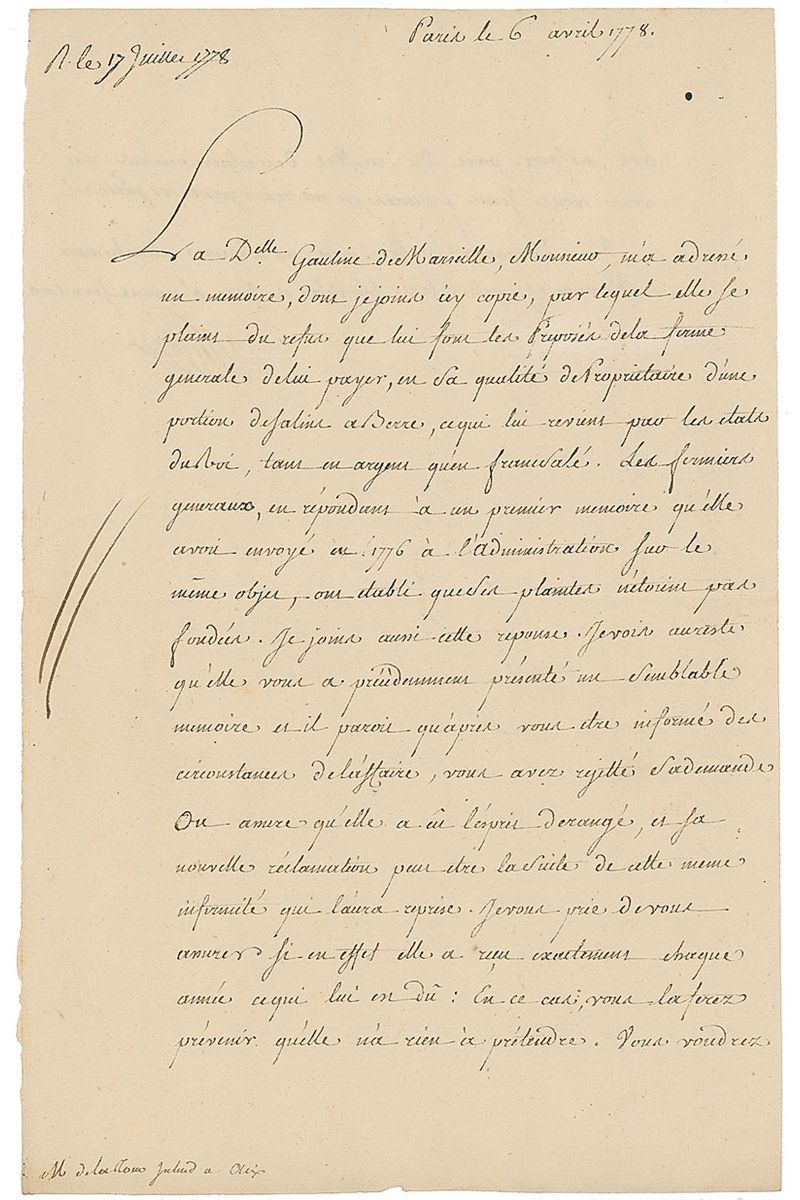 Paris le 6 avril 1778.
R. le 17 Juillet 1778
La Delle Gauline de Marseille, Monsieur, m'a adressé
un memoire, dont je joins icy copie, par lequel elle se
plaint du refus que lui font les Préposés de la ferme
generale de lui payer, en sa qualité de Propriétaire d'une
portion de salins a Berre, ce qui lui revient par les états
du Roi, tant en argent qu'en franc salé. Les fermiers
generaux, en répondant à un premier memoire qu'elle
avoit envoyé en 1776 à l'administration sur le
même objet, ont établi que ses plaintes n'étoient pas
fondées. Je joins aussi cette reponse. Je vois au reste
qu'elle vous a précédemment présenté un semblable
memoire et il paroit qu'après vous être informé des
circonstances de l'affaire, vous avez rejetté sa demande
On assure qu'elle a eû l'esprit derangé, et sa
nouvelle réclamation peut être la suite de cette meme
infirmité qui l'aura reprise. Je vous prie de vous
assurer si en effet elle a reçu exactement chaque
année ce qui lui est dû : En ce cas, vous la ferez
prévenir qu'elle n'a rien à prétendre. Vous voudrez
M. de la Tour Intend. a Aix